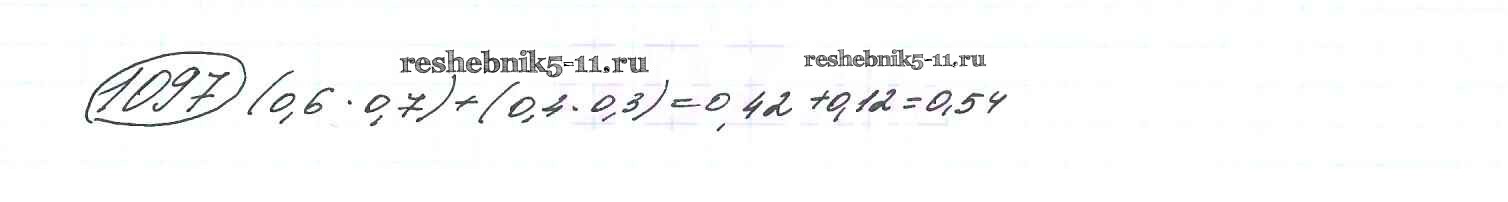 reshebnik5-11.ru reshebnik5-11.ru
1097 (0,6 · 0,7) + (0,4 · 0,3) = 0,42 + 0,12 = 0,54